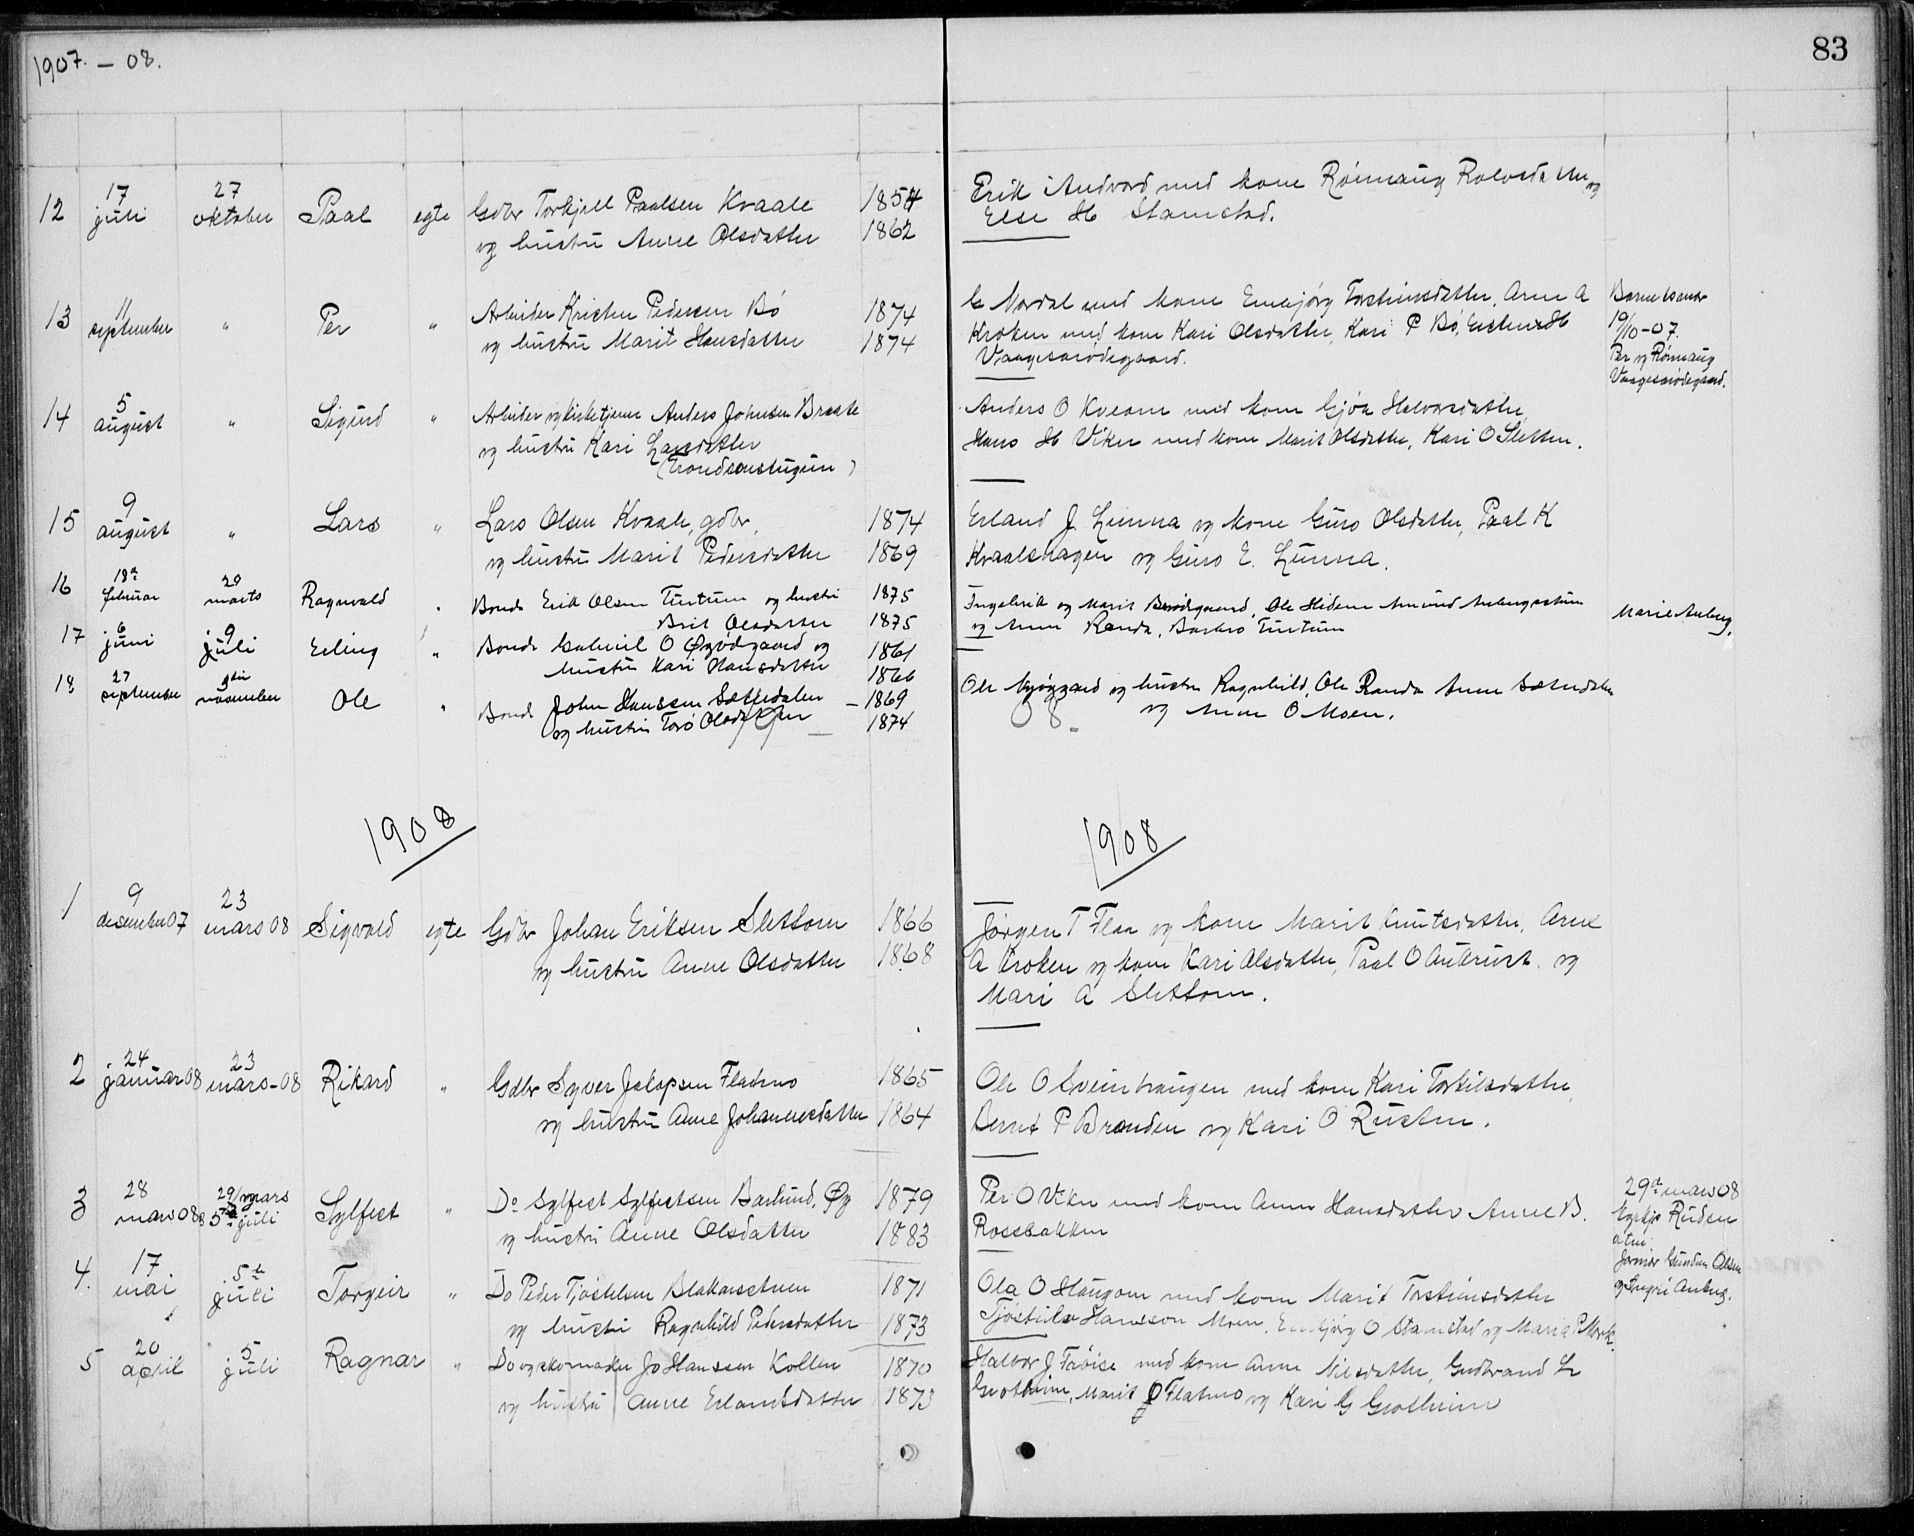 1907. – 08.
83
12 17 juli 27 oktober Paal egte Gdbr Torkjell Paalsen Kvaale 1854
og hustru Anne Olsdatter 1862
Erik Andvord med kone Rönnaug
Else H Stamstad.
13 11 september " Per " Arbeider Kristen Pedersen Bö 1874
og hustru Marit Hansdatter 1874
Nordal med kone Embjørg Torstinsdatter, Arne A
Kroken med kone Kari Olsdatter, Kari P Bö,
Vaagesmödegaard.
19/10-07.
Per og Rönnaug
Vaagesmödegaard.
14 5 august " Sigurd " Arbeider og kirketjener Anders Johnsen Braate
og hustru Kari Larsdatter
(Trondsenstugun)
Anders O Kveom med kone Gjöa Halvorsdatter,
Hans H Viken med kone Marit Olsdatter, Kari O Sletten.
15 9 august " Lars " Lars Olsen Kvaale, gdbr, 1874
og hustru Marit Pedersdatter 1869
Erland J. Lunna og kone Guro Olsdatter, Paal K
Kvaalshagen og Guro E. Lunna.
16 18de februar 29 marts Ragnvald " Bonde Erik Olsen Turtum og hustru 1875
Brit Olsdatter 1875
og Marit Ole Hidem
og Anne Randa, Barbro Turtum
Marie Auberg.
17 6 juni 9 juli Erling " Bonde Gabriel O Øyödegaard og 1861
hustru Kari Hansdatter 1866
18 27 september november Ole " Bonde John Hanssen Sæthedalen – 1869
og hustru Torö Olsdatter – 1874
Ole Nyöygard og hustru Ragnhild, Ole Randa Anne
08. og Anne O Moen.
1908
1908
1 9 desember 07 23 mars 08 Sigvald egte Gdbr Johan Eriksen Slettom 1866
og hustru Anne Olsdatter 1868
Jörgen T Flaa og kone Marit Knutsdatter, Arne
A Kroken og kone Kari Olsdatter, Paal O Aukrust og
Mari A Slettom.
2 24 januar 08 23 mars-08 Rikard " Gdbr Syver Jakopsen Flatmo 1865
og hustru Anne Johannesdatter 1864
Ole O Sveinhaugen med kone Kari Torkilsdatter,
Bernt P Branden og Kari O Rusten.
3 28 mars 08 29/mars 5te juli Sylfest " Do Sylfest Sylfestsen Barlund, Øy 1879
og hustru Anne Olsdatter 1883
Per O Viken med kone Anne Hansdatter Anne B.
Rossbakken
29de mars 08
Ruden
Jormor Gunda Olsen
og Ingri Auberg.
4. 17 mai 5te juli Torgeir " Do Peder Tjöstelsen Blakarsetuen 1871
og hustru Ragnhild Pedersdatter 1873
Ola O Haugom med kone Marit Torstinsdatter
Hansson Moen, Embjörg O Stamstad og Maria P. Mork.
5 20 april 5 juli Ragnar " Do og skomaker Jo Hanssen Kollen 1870
og hustru Anne Erlandsdatter 1873
Halvor J Fröise med kone Anne Nilsdatter, Gudbrand L
Grotheim, Marit J Flatmo og Kari G Grotheim